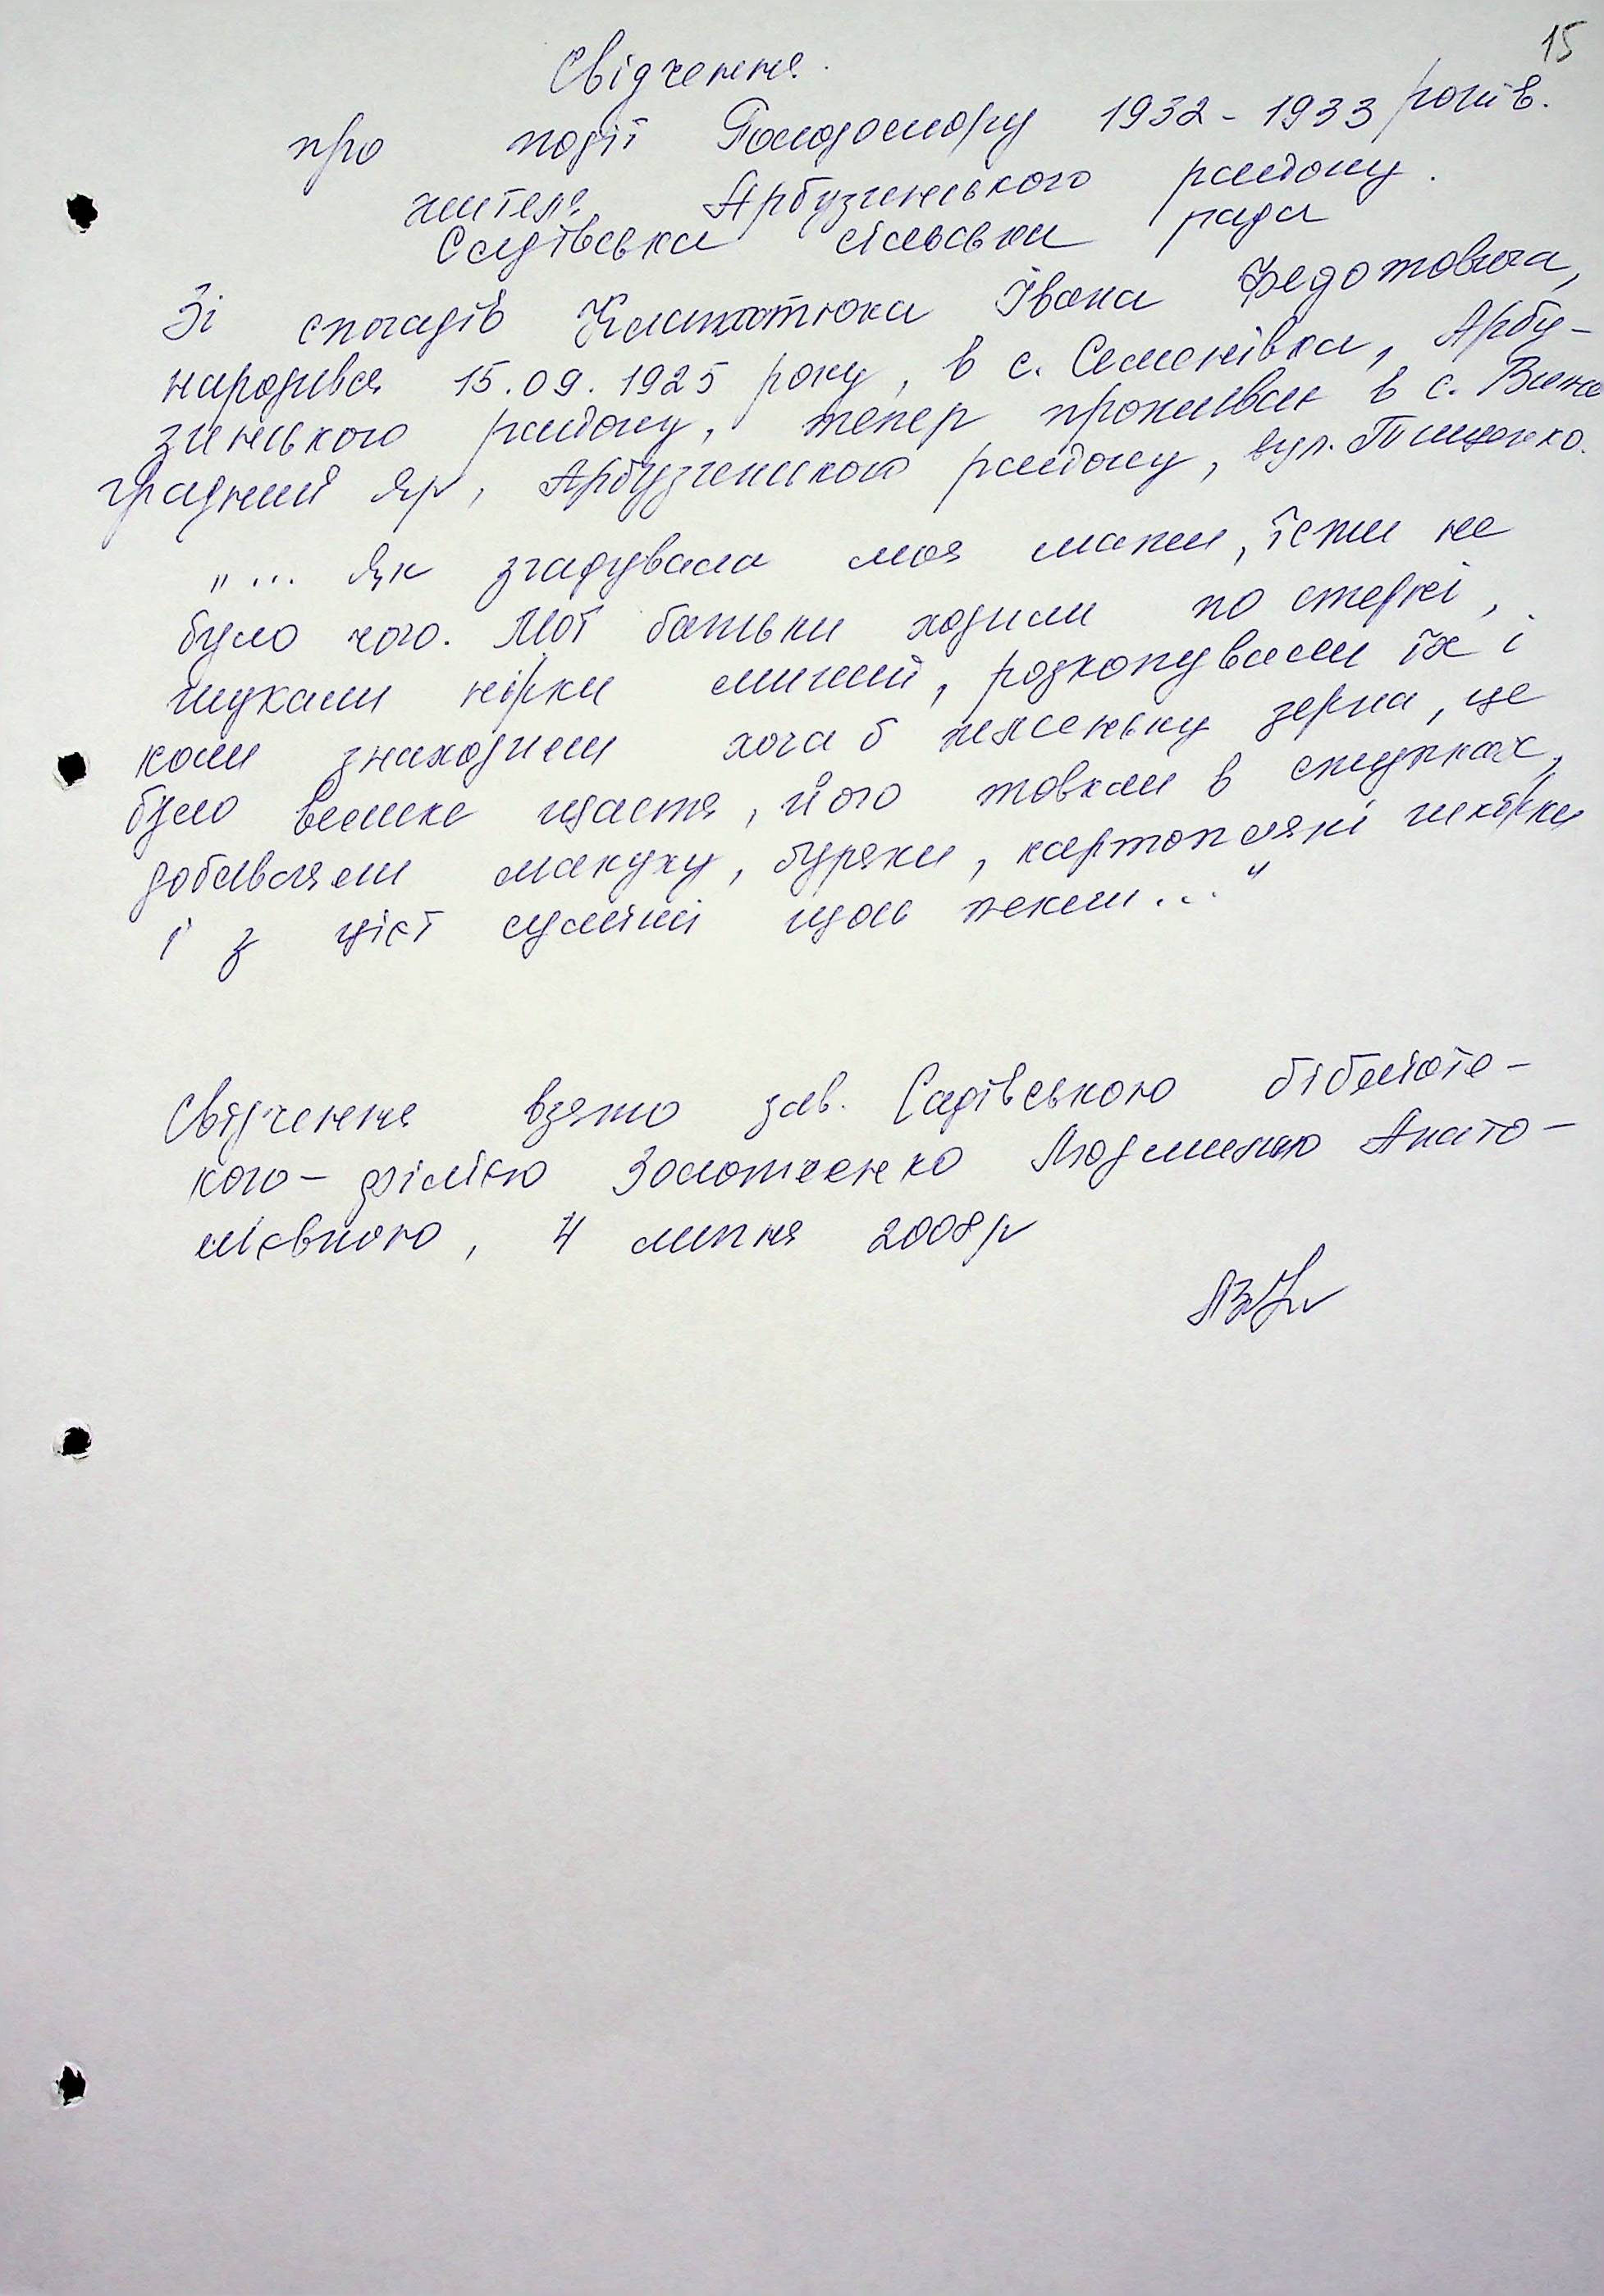 15
Свідчення.
про події Голодомору 1932-1933 років.
жителя Арбузинського району.
Садівська сільська рада
Зі спогадів Івана Федотовича,
народився 15.09.1925 року, в с. Семенівка, Арбу-
зинського району, тепер проживає в с. Вино
градний Яр, Арбузинського району, вул. Тищенко.
„... Як згадувала моя мати, їсти не
було чого. Мої батьки ходили по стерні,
шукали нірки мишей, розкопували їх і
коли знаходили хоча б жменьку зерна, це
було велике щастя, його товкли в ступках,
добавляли макуху, буряки, картопляні шкірки
і з цієї суміші щось пекли..."
Свідчення взято зав. Садівською бібліоте-
кою-філією Золотченко Людмилою Анато-
ліївною, 4 липня 2008р